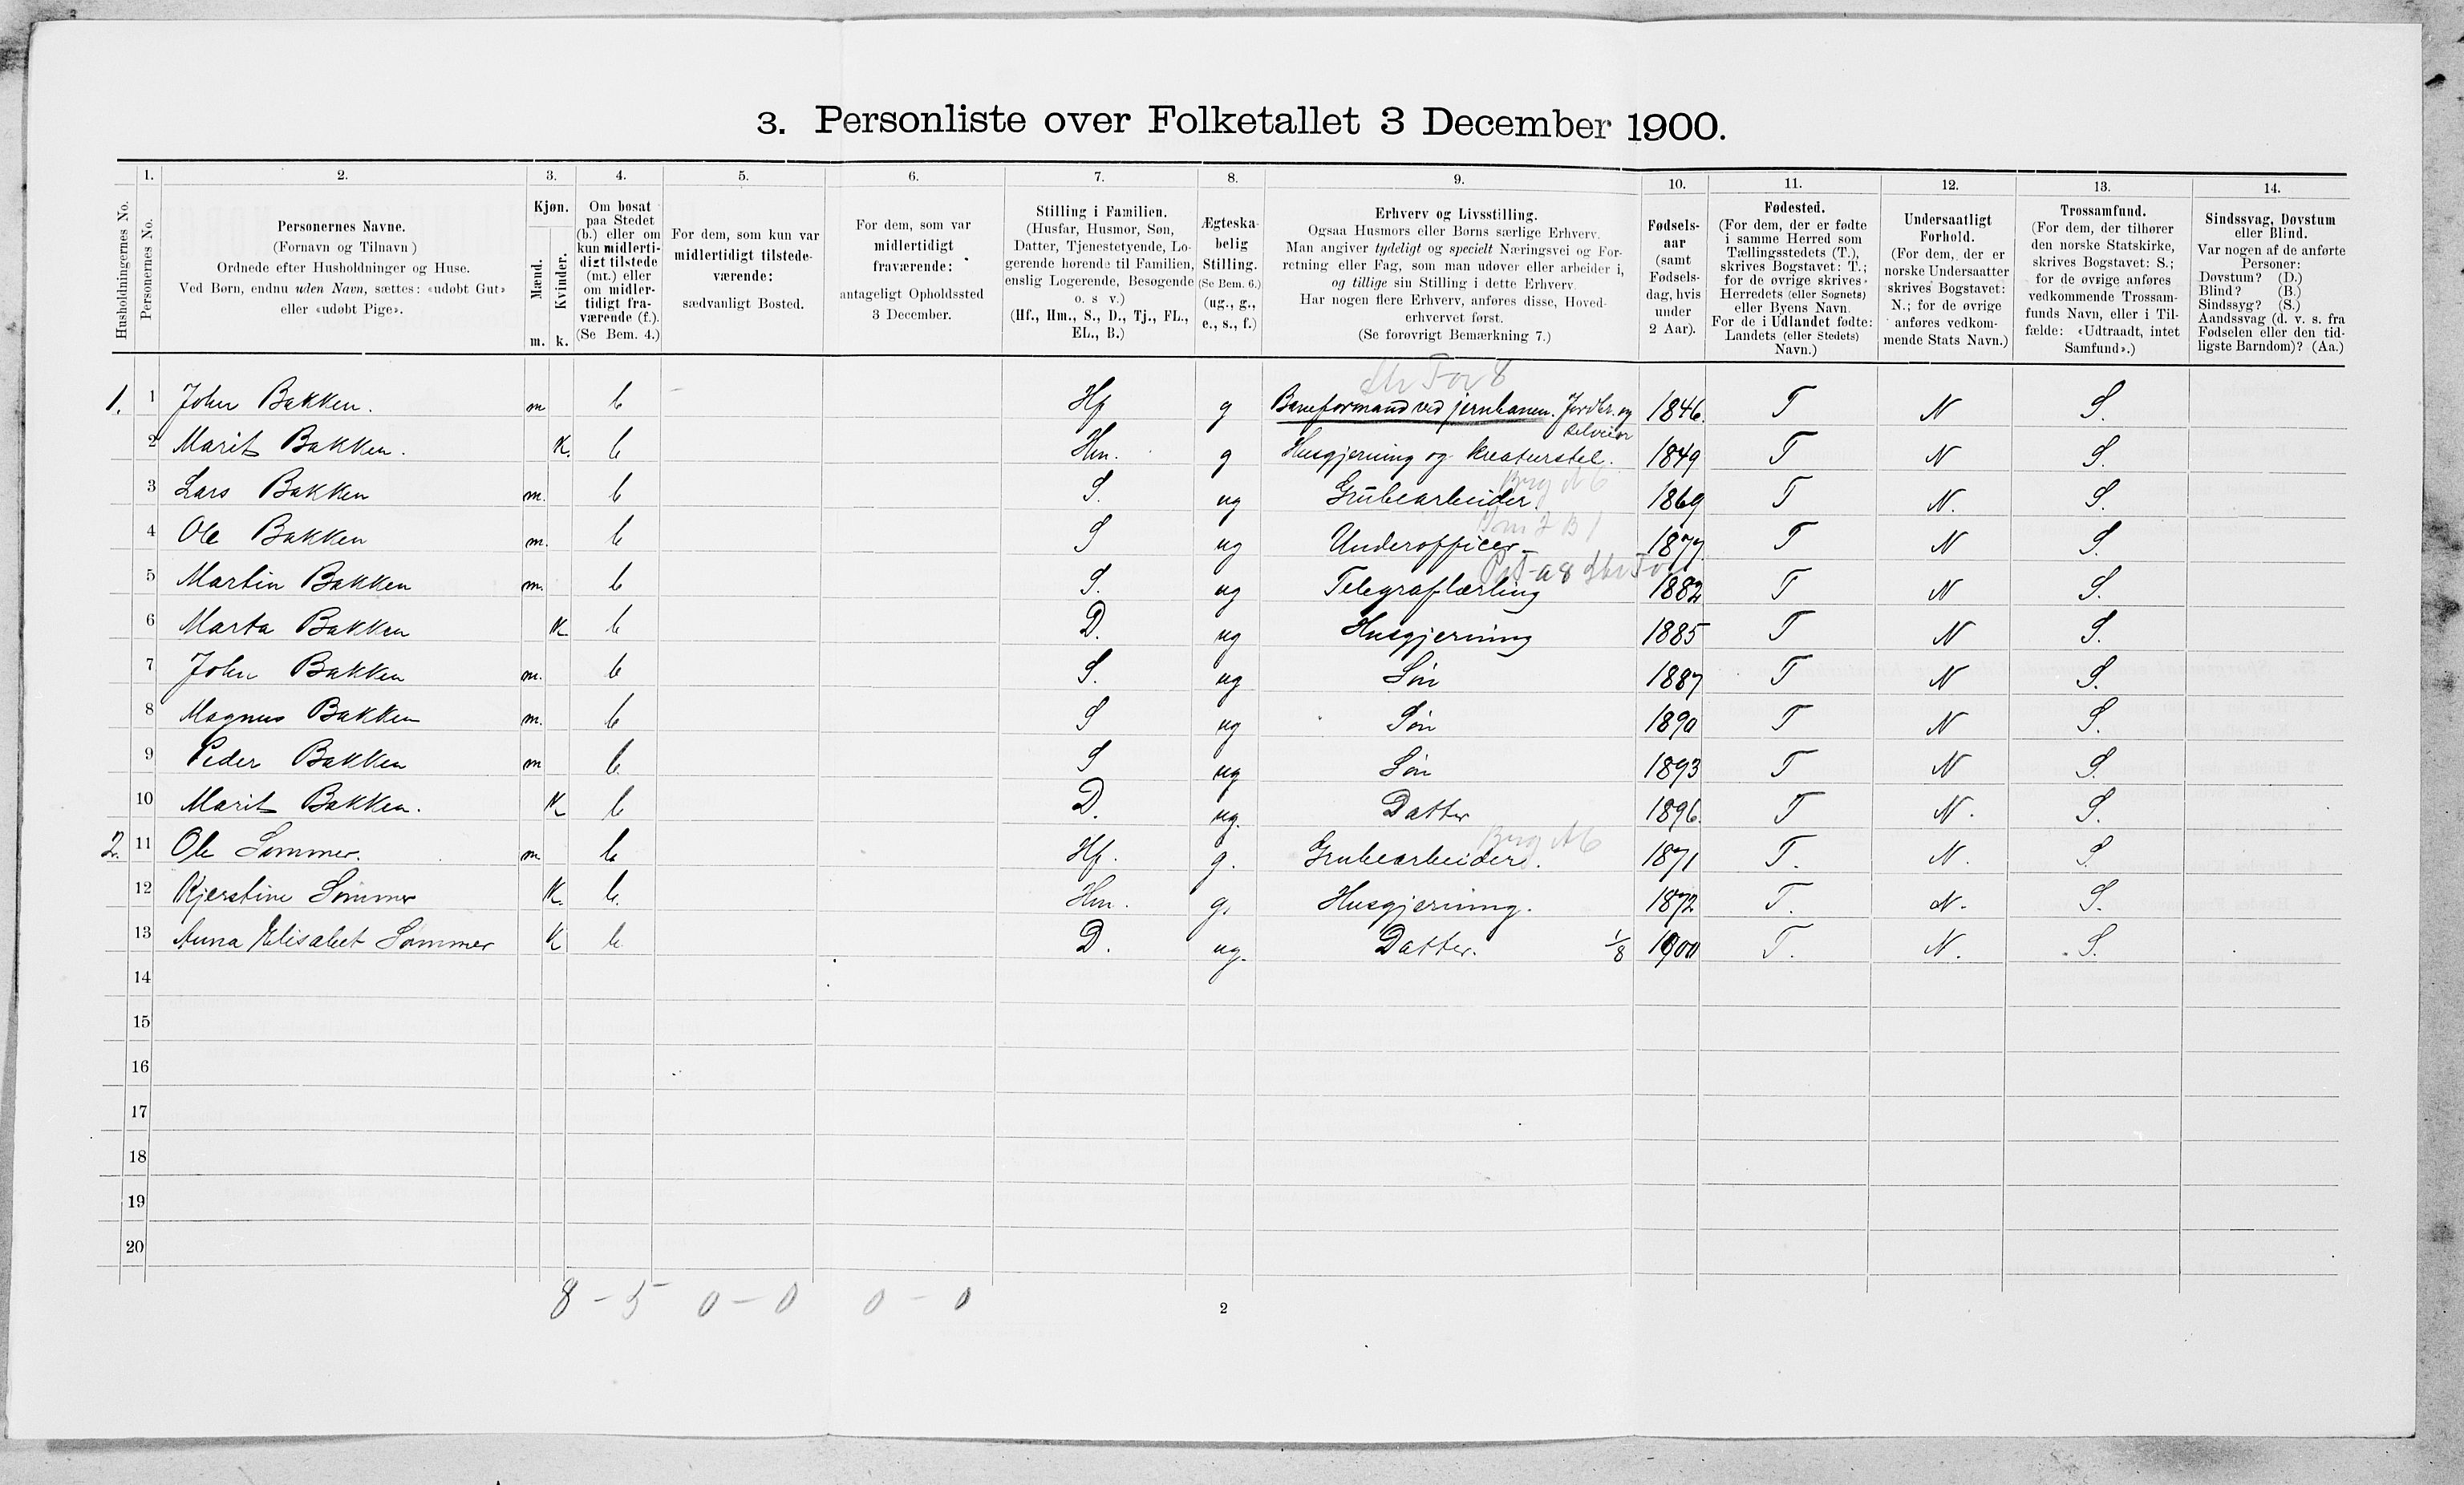 3. Personliste over Folketallet 3 December 1900.
1. 2. 3. 4. 5. 6. 7. 8. 9. 10. 11. 12. 13. 14.
Husholdningernes No.
Personernes No.
Personernes Navne.
(Fornavn og Tilnavn)
Ordnede efter Husholdninger og Huse.
Ved Børn, endnu uden Navn, sættes: «udøbt Gut»
eller «udøbt Pige».
Kjøn.
Mænd.
Kvinder.
m. k.
Om bosat
paa Stedet
(b.) eller om
kun midlerti-
digt tilstede
(mt.) eller
om midler-
tidigt fra-
værende (f.).
(Se Bem. 4.)
For dem, som kun var
midlertidigt tilstede-
værende:
sædvanligt Bosted.
For dem, som var
midlertidigt
fraværende:
antageligt Opholdssted
3 December.
Stilling i Familien.
(Husfar, Husmor, Søn,
Datter, Tjenestetyende, Lo-
gerende hørende til Familien,
enslig Logerende, Besøgende
o. s v.)
(Hf., Hm., S., D., Tj., FL.,
EL., B.)
Ægteska-
belig
Stilling.
(Se Bem. 6.)
(ug., g.,
e., s., f.)
Erhverv og Livsstilling.
Ogsaa Husmors eller Børns særlige Erhverv.
Man angiver tydeligt og specielt Næringsvei og For-
retning eller Fag, som man udøver eller arbeider i,
og tillige sin Stilling i dette Erhverv.
Har nogen flere Erhverv, anføres disse, Hoved-
erhvervet først.
(Se forøvrigt Bemærkning 7.)
Fødsels-
aar
(samt
Fødsels-
dag, hvis
under
2 Aar).
Fødested.
(For dem, der er fødte
i samme Herred som
Tællingsstedets (T.),
skrives Bogstavet: T.;
for de øvrige skrives
Herredets (eller Sognets)
eller Byens Navn.
For de i Udlandet fødte:
Landets (eller Stedets)
Navn.)
Undersaatligt
Forhold.
(For dem, der er
norske Undersaatter
skrives Bogstavet:
N.; for de øvrige
anføres vedkom-
mende Stats Navn.)
Trossamfund.
(For dem, der tilhører
den norske Statskirke,
skrives Bogstavet: S.;
for de øvrige anføres
vedkommende Trossam-
funds Navn, eller i Til-
fælde: «Udtraadt, intet
Samfund».)
Sindssvag, Døvstum
eller Blind.
Var nogen af de anførte
Personer:
Døvstum? (D.)
Blind? (B.)
Sindssyg? (S.)
Aandssvag (d. v. s. fra
Fødselen eller den tid-
ligste Barndom)? (Aa.)
1. 1 John Bakken. m b Hf g Baneformand ved jernbanen. Jordbr. og selveier 1846. T N S.
2 Marit Bakken. K. b Hm. g Husgjerning og kreaturstel. 1849 T N S.
3 Lars Bakken m. b S. ug Grubearbeider. 1869 T N. S.
4 Ole Bakken m. b S ug Underofficer 1877. T N S.
5 Martin Bakken m. b S. ug Telegraflærling 1882 T N S.
6 Marta Bakken K b D. ug Husgjerning 1885 T N S.
7 John Bakken m. b S. ug Søn 1887 T N S.
8 Magnus Bakken m. b S ug Søn 1890 T N S.
9 Peder Bakken m b. S ug Søn 1893 T N S.
10 Marit Bakken. K b D. ug. Datter 1896. T N. S.
2. 11 Ole Sommer. m b Hf. g. Grubearbeider. 1871 T. N. S.
12 Kjerstine Sommer K. b. Hm. g. Husgjerning. 1872 T. N. S.
13 Anna Elisabet Sommer K b D. ug. Datter. 1/8 1900 T. N. S.
14
15
16
17
18
19
20
8 - 5 0 - 0 0 - 0
2